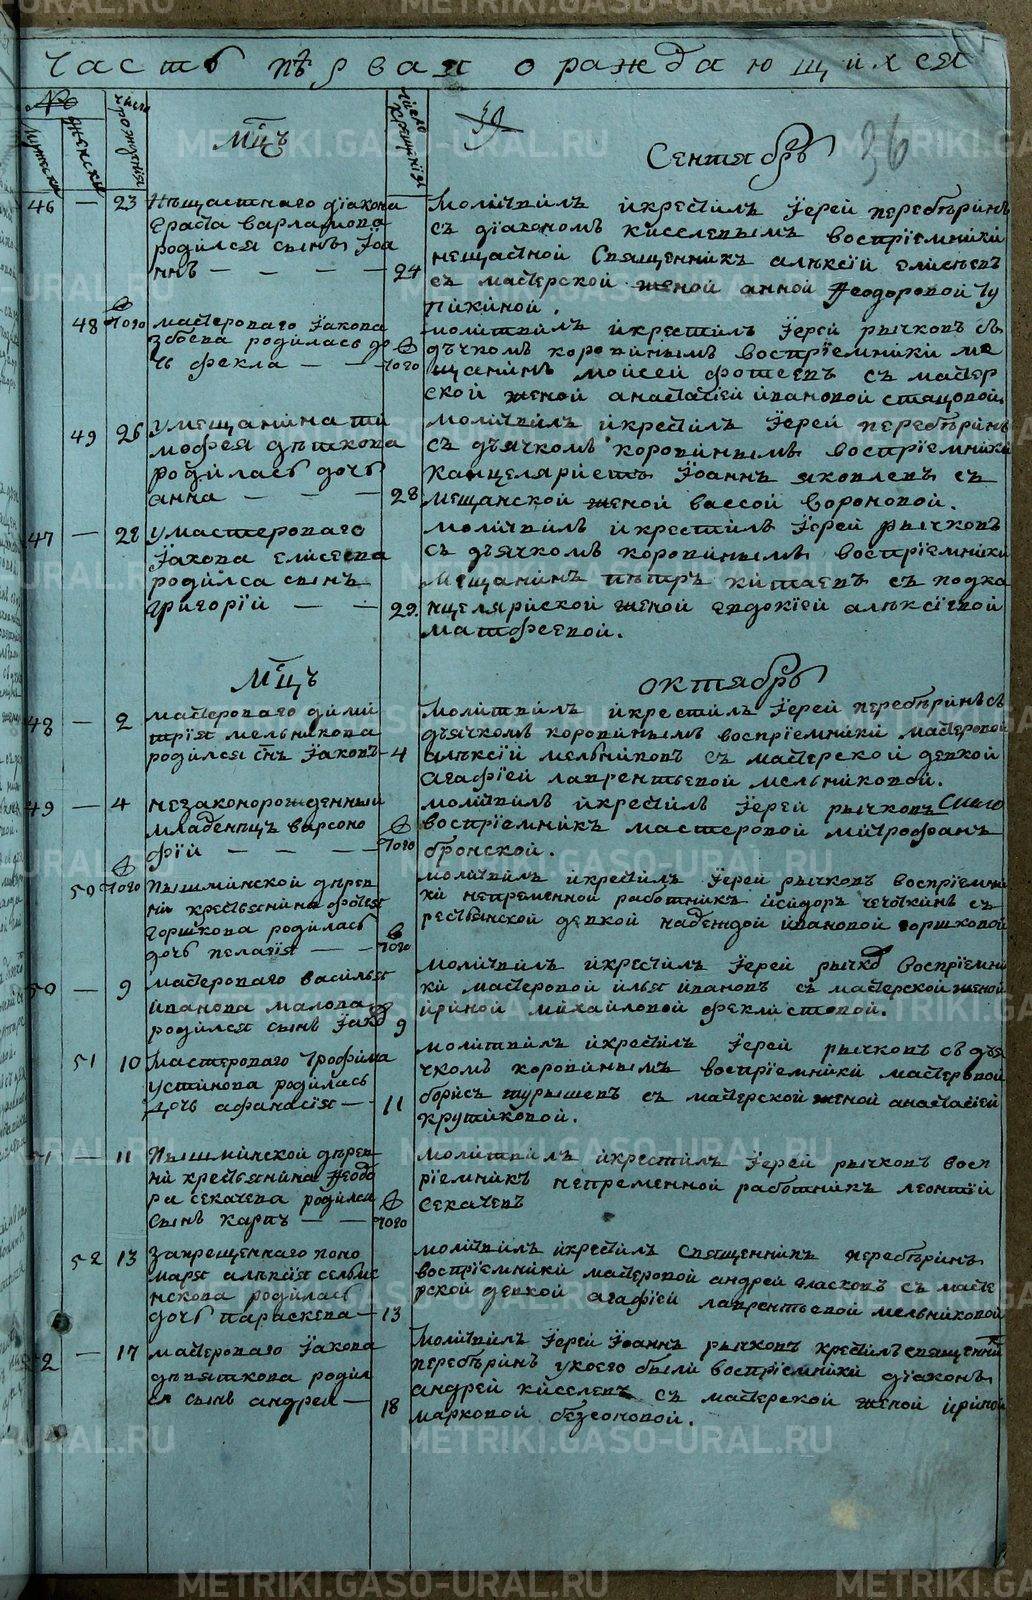 Часть пѣрвая о раждающихся
№
мужеска
женска
число рождения
число крещения
39
36
Мцъ Сентябрь
46 — 23 Нѣщастнаго діакона
Ераста варламова
родился сынъ Іоа
ннъ — — — — 24
Молитвилъ и крестилъ Іерей перебѣринъ
съ діакономъ киселевымъ воспріемники
нещастной Священникъ алѣксій елисѣевъ
съ мастерской женой анной Ѳеодоровой Чу
пикиной.
48 Того мастероваго Іакова
збоева родилась до
чь фекла — — Того
молитвилъ и крестилъ Іерей рычковъ съ
дьѣчкомъ коровинымъ воспріемники ме
щанинъ моисей фотеевъ съ мастер
ской женой анастасіей ивановой стацовой.
49 26 у мещанина ти
мофея дѣткова
родилась дочь
анна — — — 28
молитвилъ и крестилъ Іерей перебѣринъ
съ дьячкомъ коровинымъ воспріемники
канцеляристъ Іоаннъ яковлевъ съ
мещанской женой вассой вороновой.
47 — 28 у мастероваго
Іакова елисеева
родился сынъ
григорій — — 29.
молитвилъ и крестилъ Іерей рычковъ
съ дьячкомъ коровинымъ воспріемники
мещанинъ пѣтръ китаевъ съ подка
нцелярйской женой евдокіей алѣксіевой
матфеевой.
Мцъ октябрь
48 — 2 мастероваго дими
трія мельникова
родился снъ Іаковъ — 4
молитвилъ и крестилъ Іерей перебѣринъ съ
дьячкомъ коровинымъ воспріемники мастеровой
алѣксій мельниковъ съ мастерской девкой
агафіей лаврентьевой мельниковой.
49 — 4 незаконорожденный
младенецъ варсоно
фій — — — Того
молитвилъ и крестилъ Іерей рычковъ Сниго
воспріемникъ мастеровой митрофанъ
бронской.
50 Того пышминской дѣрев
ни крестьянина фотея
горшкова родилась
дочь пелагія — — Того
молитвилъ и крестилъ Іерей рычковъ воспріемни
ки непременной работникъ исидоръ чечоткинъ съ
рестьянской девкой надеждой ивановой горшковой
50 — 9 мастероваго василья
иванова малова
родился сынъ Іаков 9
молитвилъ и крестилъ Іерей рычков воспріемни
ки мастеровой илья ивановъ съ мастерской женой
ириной михайловой феклистовой.
51 10 мастероваго трофима
устинова родилась
дочь афанасія — 11
молитвилъ и крестилъ Іерей рычковъ съ дья
чкомъ коровинымъ воспріемники мастеровой
борисъ турышевъ съ мастерской женой анастасіей
крутиковой.
51 — 11 Пышминской дѣрев
ни крестьянина Ѳеодо
ра секачева родился
сынъ карпъ — — Того
молитвилъ и крестилъ Іерей рычковъ восп
ріемникъ непременной работникъ леонтій
секачевъ
52 13 запрещеннаго поно
маря алѣксія сельме
нскова родилась
дочь параскева — 13
молитвилъ и крестилъ священникъ перебѣринъ
воспріемники мастеровой андрей власковъ съ масте
рской девкой агафіей лаврентьевой мельниковой
52 — 17 мастероваго Іакова
дѣвяткова родил
ся сынъ андреи — 18
молитвилъ Іерей Іоаннъ рычковъ крестилъ священни
перебѣринъ у коего были воспріемники діаконъ
андрей киселевъ съ мастерской женой ириной
марковой безсоновой.